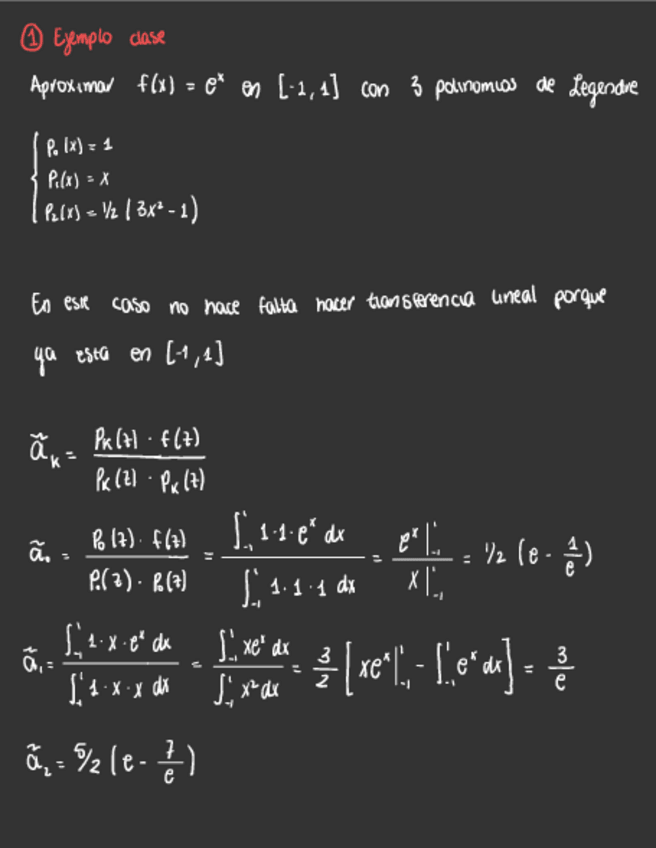 ① Ejemplo clase
Aproximar f(x) = e^x en [-1,1] con 3 polinomios de Legendre
P₀(x) = 1
P₁(x) = x
P₂(x) = 1/2 (3x² - 1)
En este caso no hace falta hacer transferencia lineal porque
ya está en [-1,1]
ã_K = (P_K(z) · f(z)) / (P_K(z) · P_K(z))
ã₀ = (P₀(z) · f(z)) / (P₀(z) · P₀(z)) = (∫₋₁¹ 1·1·e^x dx) / (∫₋₁¹ 1·1·1 dx) = (e^x |₋₁¹) / (x |₋₁¹) = 1/2 (e - 1/e)
ã₁ = (∫₋₁¹ 1·x·e^x dx) / (∫₋₁¹ 1·x·x dx) = (∫₋₁¹ xe^x dx) / (∫₋₁¹ x² dx) = 3/2 [xe^x |₋₁¹ - ∫₋₁¹ e^x dx] = 3/e
ã₂ = 5/2 (e - 7/e)